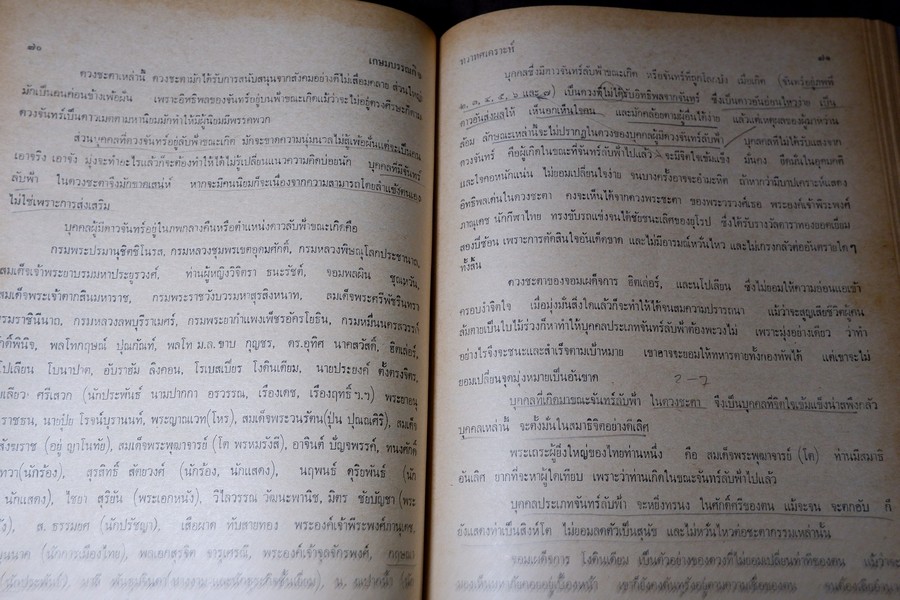 ๗๐
เกษมบรรณกิจ
ดวงชะตาเหล่านี้ ดวงชะตามักได้รับการสนับสนุนจากสังคมอย่างดีไม่เสื่อมคลาย ส่วนใหญ่
มักเป็นคนค่อนข้างเพ้อฝัน เพราะอิทธิพลของจันทร์อยู่บนฟ้าขณะเกิดแม้ว่าจะไม่อยู่ตรงศีรษะก็ตาม
ดวงจันทร์เป็นดาวเมตตามหานิยมมักทำให้มีผู้นิยมมีพรรคพวก
ส่วนบุคคลที่ดวงจันทร์อยู่ลับฟ้าขณะเกิด มักจะขาดความนุ่มนวลไม่สู้เพ้อฝันแต่จะเป็นคน
เอาจริง เอาจัง มุ่งจะทำอะไรแล้วก็จะต้องทำให้ได้ไม่รู้เปลี่ยนแนวความคิดบ่อยนัก บุคคลที่มีจันทร์
ลับฟ้า ในดวงชะตาจึงมักขาดเสน่ห์ หากจะมีคนนิยมก็จะเนื่องจากความสามารถโดยลำแข้งตนเอง
ไม่ใช่เพราะการส่งเสริม
บุคคลผู้มีดาวจันทร์อยู่ในภพกลางคืนหรือตำแหน่งดาวลับฟ้าขณะเกิดคือ
กรมพระปรมานุชิตชิโนรส, กรมหลวงชุมพรเขตอุดมศักดิ์, กรมหลวงพิษณุโลกประชานาถ,
สมเด็จเจ้าพระยาบรมมหาประยูรวงศ์, ท่านผู้หญิงวิจิตรา ธนะรัชต์, จอมพลผิน ชุณหะวัน,
สมเด็จพระเจ้าตากสินมหาราช, กรมพระราชวังบวรมหาสุรสิงหนาท, สมเด็จพระศรีพัชรินทรา
บรมราชินีนาถ, กรมหลวงลพบุรีราเมศร์, กรมพระยากำแพงเพ็ชรอัครโยธิน,
ศักดิ์พินิจ, พลโทกฤษณ์ ปุณกัณฑ์, พลโท ม.ล.ขาบ กุญชร, ดร.อุทิศ นาคสวัสดิ์, ฮิตเล่อร์,
โปเลียน โบนาปาต, อับราฮัม ลิงคอน, โรเบสเปียร โงดินเดียม, นายประยงค์ ตั้งตรงจิตร,
เลียว ศรีเสวก (นักประพันธ์ นามปากกา อรวรรณ, เรืองเดช, เรืองฤทธิ์ ฯ.ฯ) พระยาอนุ
ราชธน, นายปุ่ย โรจน์บุรานนท์, พระญาณเวท(โหร), สมเด็จพระวนรัตน์(ปุ่น ปุณณศิริ), สมเด็จ
สังฆราช (อยู่ ญาโณทัย), สมเด็จพระพุฒาจารย์ (โต พรหมรังสี), อาจินต์ ปัญจพรรค์, ทนงศักดิ์
ทวา(นักร้อง), สุรสิทธิ์ สัตยวงศ์ (นักร้อง, นักแสดง), นฤพนธ์ ดุริยพันธ์ (นัก
นักแสดง), ไชยา สุริยัน (พระเอกหนัง), วิไลวรรณ วัฒนะพานิช, มิตร ชัยบัญชา (พระ
ส. ธรรมยศ (นักปรัชญา), เสือผาด ทับสายทอง พระองค์เจ้าพีระพงศ์ภาณุเดช,
(นักการเมืองไทย), พลเอกสุรจิต จารุเศรณี, พระองค์เจ้าจุลจักรพงศ์, กฤษณา
๗๑
ทวาทศเคราะห์
บุคคลซึ่งมีดาวจันทร์ลับฟ้าขณะเกิด หรือจันทร์ที่ถูกโลกบัง เมื่อเกิด (จันทร์อยู่ภพที่
๒, ๓, ๔, ๕, ๖ และ ๗) เป็นดวงที่ไม่ได้รับอิทธิพลจากจันทร์ ซึ่งเป็นดาวอันอ่อนไหวง่าย เป็น
ดาวอันส่งผลให้ เห็นอกเห็นใจคน และมักคล้อยตามผู้อื่นได้ง่าย แล้วแต่เหตุผลของผู้มาหว่าน
ล้อม ลักษณะเหล่านี้จะไม่ปรากฏในดวงของบุคคลผู้มีดวงจันทร์ลับฟ้า บุคคลที่ไม่ได้รับแสงจาก
ดวงจันทร์ คือผู้เกิดในขณะที่จันทร์ลับฟ้าไปแล้ว จะมีจิตใจเข้มแข็ง มั่นคง ยึดมั่นในอุดมคติ
และใจคอหนักแน่น ไม่ยอมเปลี่ยนใจง่าย จนบางครั้งอาจจะอำมะหิต ถ้าหากว่ามีบาปเคราะห์แสดง
อิทธิพลเด่นในดวงชะตา ดงจะเห็นได้จากดวงพระชะตา ของพระวรวงศ์เธอ พระองค์เจ้าพีระพงศ์
ภาณุเดช นักกีฬาไทย ทรงขับรถแข่งจนได้ชัยชนะเลิศของยุโรป ซึ่งได้รับรางวัลดาราทองยอดเยี่ยม
สองปีซ้อน เพราะการตัดสินใจอันเด็ดขาด และไม่มีอารมณ์หวั่นไหว และไม่เกรงกลัวต่ออันตรายใด ๆ
ทั้งสิ้น
ดวงชะตาของจอมเผด็จการ ฮิตเล่อร์, และนโปเลียน ซึ่งไม่ยอมให้ความอ่อนแอเข้า
ครอบงำจิตใจ เมื่อมุ่งมั่นสิ่งใดแล้วก็จะทำให้ได้จนสมความปรารถนา แม้ว่าจะสูญเสียชีวิตผู้คน
ล้มตายเป็นใบไม้ร่วงก็หาทำให้บุคคลประเภทจันทร์ลับฟ้าต้องพะวงไม่ เพราะมุ่งอย่างเดียว ว่าทำ
อย่างไรจึงจะชนะและสำเร็จตามเป้าหมาย เขาอาจจะยอมให้ทหารตายทั้งกองทัพได้ แต่เขาจะไม่
ยอมเปลี่ยนจุดมุ่งหมายเป็นอันขาด
บุคคลที่เกิดมาขณะจันทร์ลับฟ้า ในดวงชะตา จึงเป็นบุคคลที่จิตใจเข้มแข็งน่าสพึงกลัว
บุคคลเหล่านี้ จะตั้งมั่นในสมาธิจิตอย่างดีเลิศ
พระเถระผู้ยิ่งใหญ่ของไทยท่านหนึ่ง คือ สมเด็จพระพุฒาจารย์ (โต) ท่านมีสมาธิ
อันเลิศ ยากที่จะหาผู้ใดเทียบ เพราะว่าท่านเกิดในขณะจันทร์ลับฟ้าไปแล้ว
บุคคลประเภทจันทร์ลับฟ้า จะหยิ่งทรนง ในศักดิ์ศรีของตน แม้จะจน จะตกอับ ก็
ยังแสดงท่าเป็นสิงห์โต ไม่ยอมลดตัวเป็นสุนัข และไม่หวั่นไหวต่อชะตากรรมเหล่านั้น
จอมเผด็จการ โงดินเดียม เป็นตัวอย่างของดวงที่ไม่ยอมเปลี่ยนท่าทีของตน แม้ว่าจะ